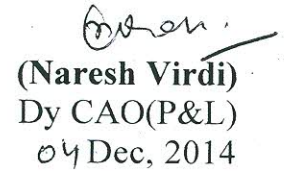 (Naresh Virdi)
Dy CAO(P&L)
04 Dec, 2014